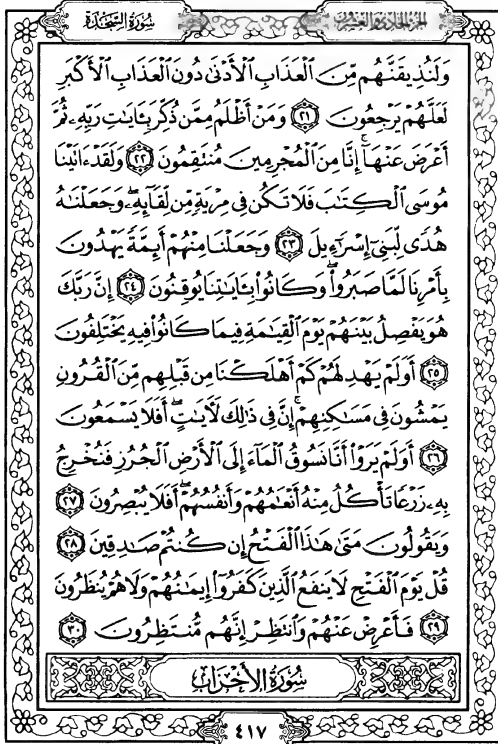 سُورَةُ السَّجْدَةِ الجزء الحادي والعشرون
وَلَنُذِيقَنَّهُم مِّنَ ٱلْعَذَابِ ٱلْأَدْنَىٰ دُونَ ٱلْعَذَابِ ٱلْأَكْبَرِ
لَعَلَّهُمْ يَرْجِعُونَ ٢١ وَمَنْ أَظْلَمُ مِمَّن ذُكِّرَ بِـَٔايَٰتِ رَبِّهِۦ ثُمَّ
أَعْرَضَ عَنْهَآ ۚ إِنَّا مِنَ ٱلْمُجْرِمِينَ مُنتَقِمُونَ ٢٢ وَلَقَدْ ءَاتَيْنَا
مُوسَى ٱلْكِتَٰبَ فَلَا تَكُن فِى مِرْيَةٍ مِّن لِّقَآئِهِۦ ۖ وَجَعَلْنَٰهُ
هُدًى لِّبَنِىٓ إِسْرَٰٓءِيلَ ٢٣ وَجَعَلْنَا مِنْهُمْ أَئِمَّةً يَهْدُونَ
بِأَمْرِنَا لَمَّا صَبَرُوا۟ ۖ وَكَانُوا۟ بِـَٔايَٰتِنَا يُوقِنُونَ ٢٤ إِنَّ رَبَّكَ
هُوَ يَفْصِلُ بَيْنَهُمْ يَوْمَ ٱلْقِيَٰمَةِ فِيمَا كَانُوا۟ فِيهِ يَخْتَلِفُونَ
٢٥ أَوَلَمْ يَهْدِ لَهُمْ كَمْ أَهْلَكْنَا مِن قَبْلِهِم مِّنَ ٱلْقُرُونِ
يَمْشُونَ فِى مَسَٰكِنِهِمْ ۚ إِنَّ فِى ذَٰلِكَ لَـَٔايَٰتٍ ۖ أَفَلَا يَسْمَعُونَ
٢٦ أَوَلَمْ يَرَوْا۟ أَنَّا نَسُوقُ ٱلْمَآءَ إِلَى ٱلْأَرْضِ ٱلْجُرُزِ فَنُخْرِجُ
بِهِۦ زَرْعًا تَأْكُلُ مِنْهُ أَنْعَٰمُهُمْ وَأَنفُسُهُمْ ۖ أَفَلَا يُبْصِرُونَ ٢٧
وَيَقُولُونَ مَتَىٰ هَٰذَا ٱلْفَتْحُ إِن كُنتُمْ صَٰدِقِينَ ٢٨
قُلْ يَوْمَ ٱلْفَتْحِ لَا يَنفَعُ ٱلَّذِينَ كَفَرُوٓا۟ إِيمَٰنُهُمْ وَلَا هُمْ يُنظَرُونَ
٢٩ فَأَعْرِضْ عَنْهُمْ وَٱنتَظِرْ إِنَّهُم مُّنتَظِرُونَ ٣٠
سُورَةُ الأَحْزَابِ
٤١٧